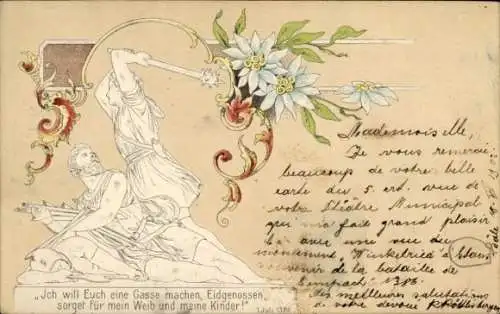 Mademoiselle,
Je vous remercie
beaucoup de votre belle
carte du 5. crt. vue de
votre Théâtre Municipal
qui m'a fait grand plaisir
avec une vue du
monument "Winkelried" à Stans
souvenir de la bataille de
Sempach 1386
Mes meilleures salutations
de votre dévoué
„Ich will Euch eine Gasse machen, Eidgenossen,
sorget für mein Weib und meine Kinder!"